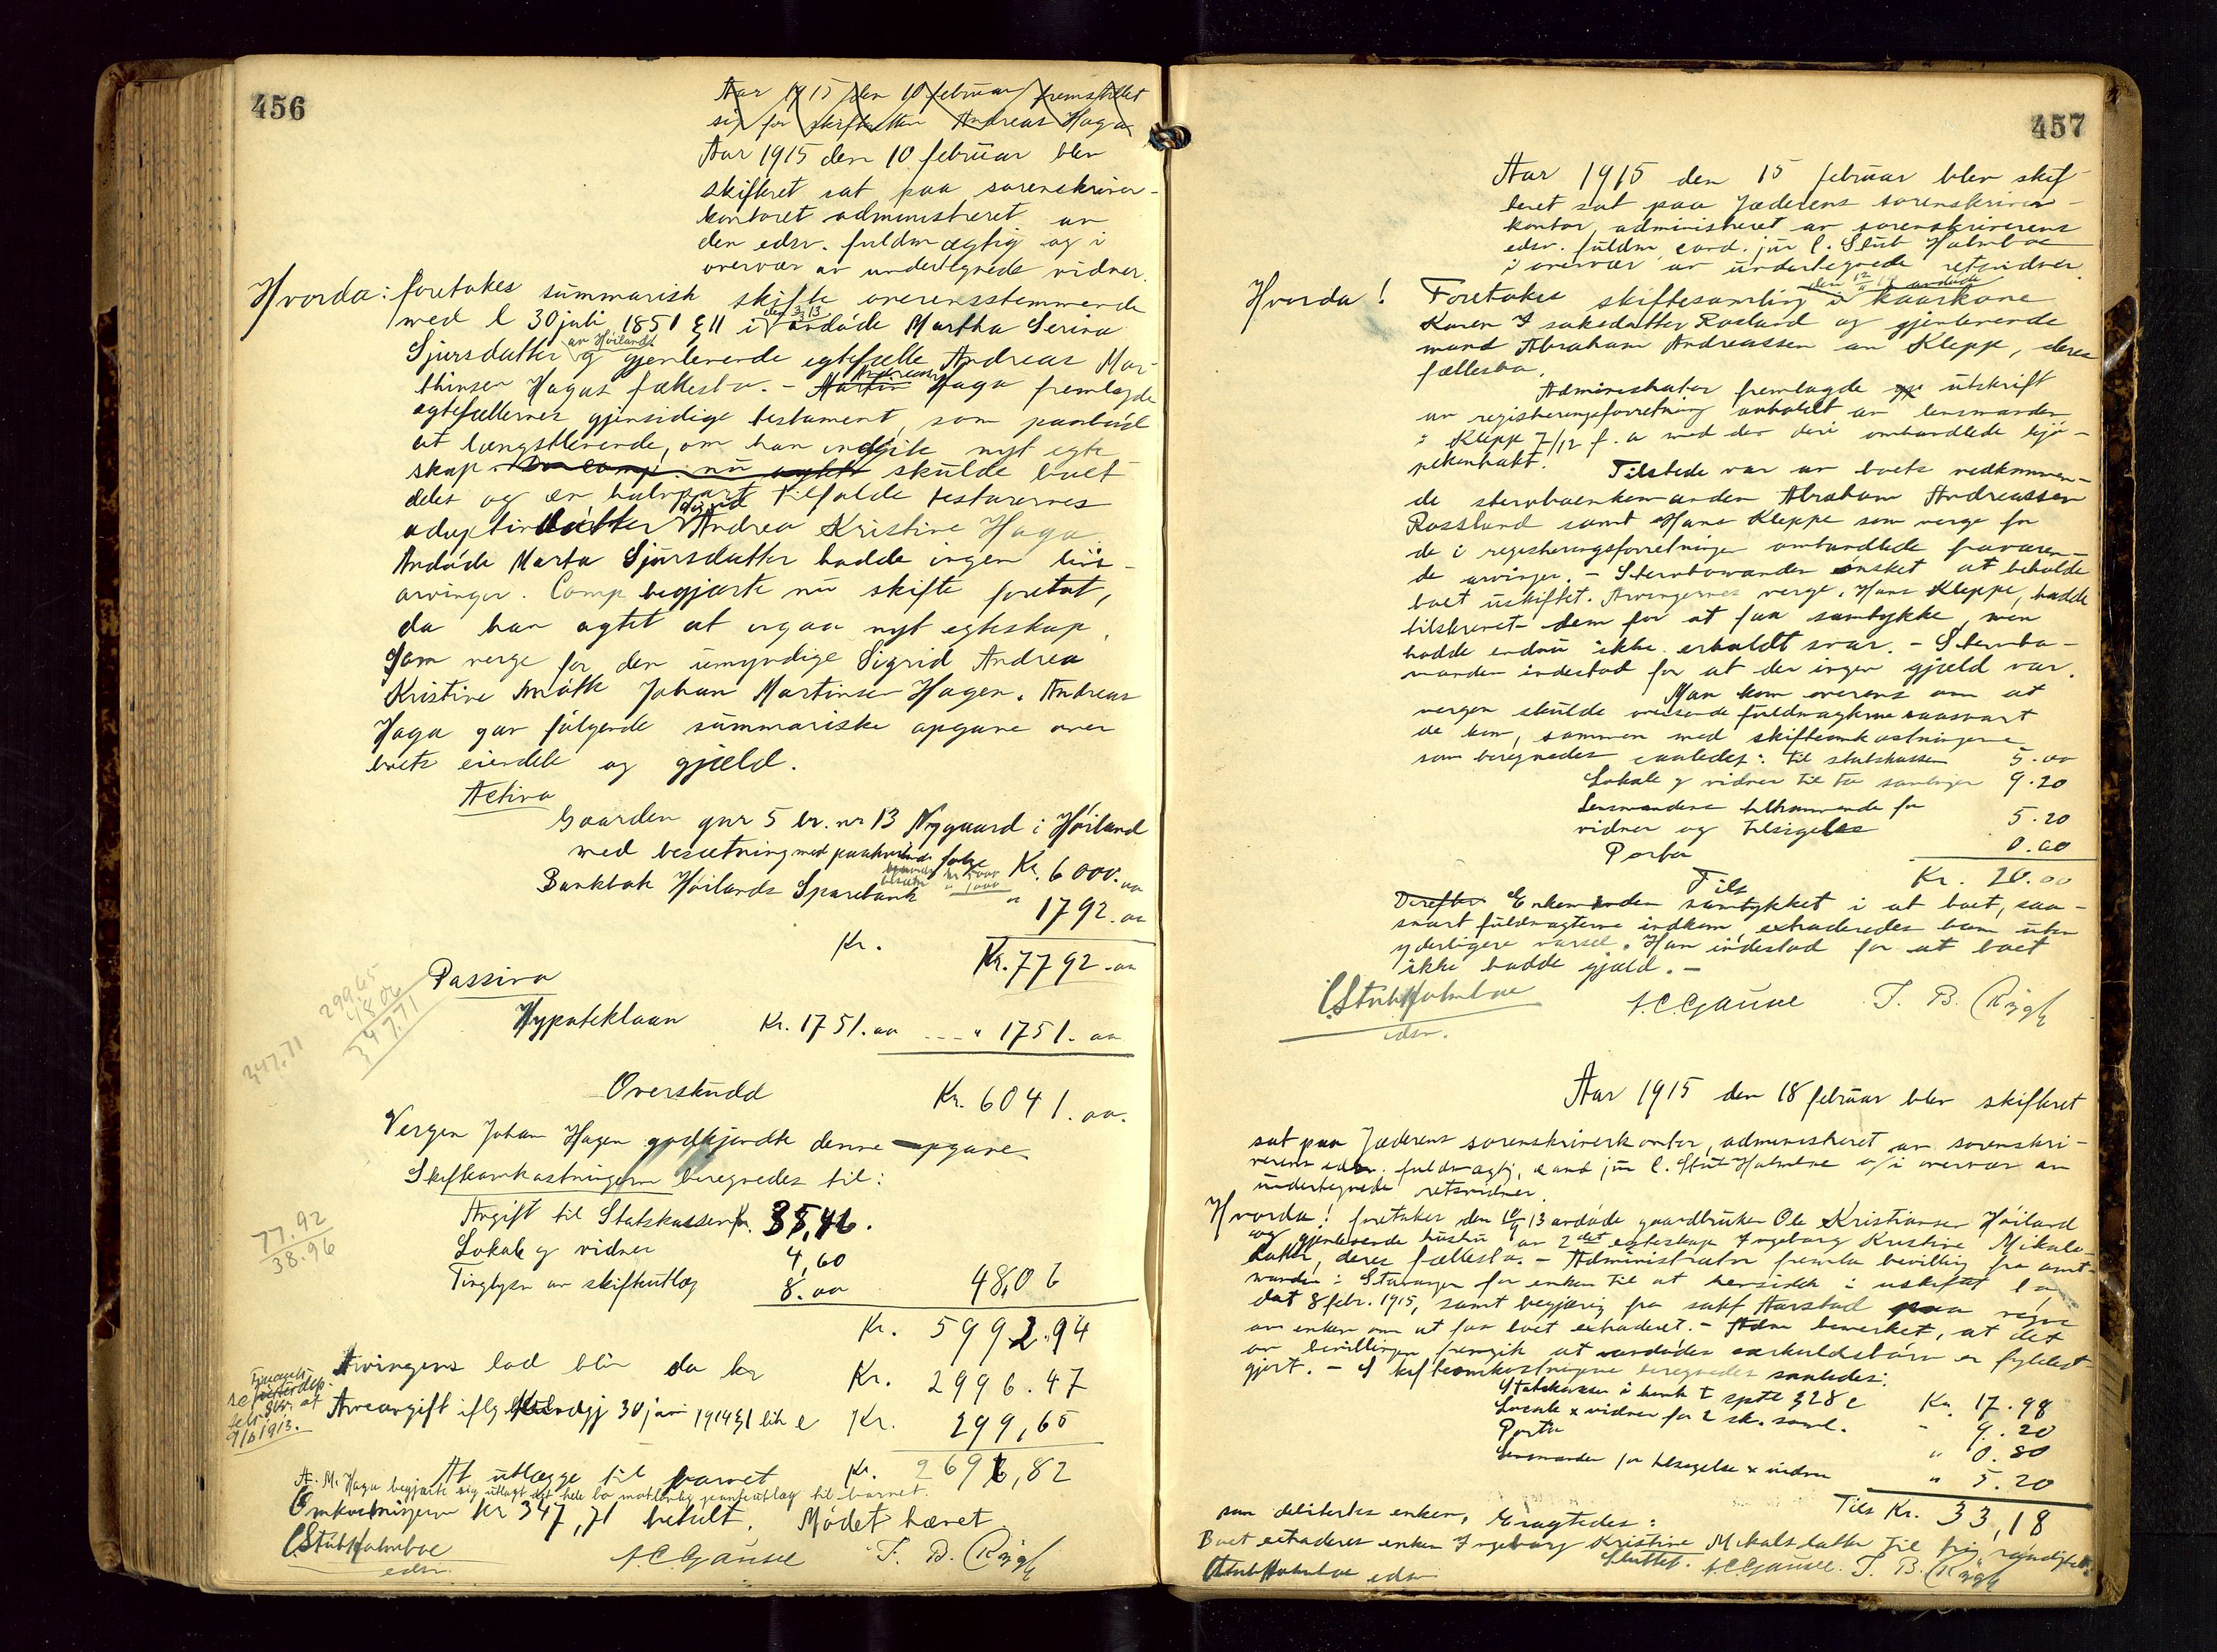 456
Aar 1915 den 10 februar fremstillet
sig for skifteretten Andreas Haga
Aar 1915 den 10 februar blev
skifteret sat paa sorenskriver-
kontoret administreret av
den edsv. fuldmægtig og i
overvær av undertegnede vidner.
Hvorda: foretokes summarisk skifte overensstemmende
med l 30 juli 1851 § 11 i den 3/3 13 avdöde Martha Serina
Sjursdatter av Höiland og gjenlevende egtefælle Andreas Mar-
thinsen Hagas fællesbo. - Martin Andreas Haga fremlagde
egtefællernes gjensidige testament, som paaböd
at længstlevende, om han indgik nyt egte
skap skulde boet
deles og en halvpart tilfalde testatorernes
adoptivdatter Sigrid Andrea Kristine Haga
Avdöde Marta Sjursdatter hadde ingen livs-
arvinger. Comp begjærte nu skifte foretat,
da han agtet at ingaa nyt egteskap.
Som verge for den umyndige Sigrid Andrea
Kristine mötte Johan Martinsen Hagen. Andreas
Haga gav fölgende summariske opgave over
boets eiendele og gjæld.
Activa
Gaarden gnr 5 br. nr 13 Nygaard i Höiland
med besætning med paahvilende folge Kr. 6000.00
Bankbok Höilands Sparebank " 1792.00
Kr. Kr. 7792.00
Passiva
Hypoteklaan Kr. 1751.00 --- " 1751.00
299,65
48,06
347,71
347,71
Overskudd Kr. 6041.00.
Vergen Johan Hagen godkjendte denne opgave
Skifteomkostningerne beregnedes til:
Avgift til Statskassen Kr. 35,46.
Lokale og vidner 4,60
Tinglysn av skifteutlæg 8.00 48,06
77.92
38.96
Kr. 5992.94
Arvingens lod blir da kr Kr. 2996.47
Arveavgift iflg 30 juni 1914 § 1 litr e Kr. 299,65
9/6 1913.
At utlægge til barnet Kr. 2696,82
A. M. Haga begjærte sig utlagt det hele bo mot lovlig panteutlæg til barnet.
Omkostningerne kr 347,71 betalt. Mödet hævet
C Stub Holmboe
edsv.
A. C. Gausel T. B. Rygh
457
Aar 1915 den 15 februar blev skif-
teret sat paa Jæderens sorenskriver-
kontor, administreret av sorenskriverens
edsv. fuldm. cand. jur C. Stub Holmboe
i overvær av undertegnede retsvidner.
Hvorda! Foretokes skiftesamling i den avdöde kaarkone
Karen Isaksdatter Rosland og gjenlevende
mand Abraham Andreassen av Klepp, deres
fællesbo.
Administrator fremlagde utskrift
av registreringsforretning avholdt av lensmanden
i Klepp 7/12 f. a med der deri omhandlede kjö-
pekontrakt. Tilstede var av boets vedkommen-
de stervboenkemanden Abraham Andreassen
Rossland samt Hans Kleppe som verge for
de i registreringsforretningen omhandlede fraværen-
de arvinger. - Stervbomanden önsket at beholde
boet uskiftet. Arvingernes verge, Hans Kleppe, hadde
tilskrevet dem for at faa samtykke, men
hadde endnu ikke erholdt svar. - Stervbo-
manden indestod for at der ingen gjæld var.
Man kom overens om at
vergen skulde oversende fuldmagterne saasnart
de kom, sammen med skifteomkostningerne
som beregnedes saaledes: til statskassen 5.00
Lokale og vidner til to samlinger 9.20
Lensmandens tilkommende for
vidner og tilsigelse 5.20
Porto 0.60
Tils Kr. 20.00
Derefter Enkemanden samtykket i at boet, saa-
snart fuldmagterne indkom, extraderedes ham uten
yderligere varsel. Han indestod for at boet
ikke hadde gjæld. -
C Stub Holmboe
edsv.
A. C. Gausel T. B. Rygh
Aar 1915 den 18 februar blev skifteret
sat paa Jæderens sorenskriverkontor, administreret av sorenskri-
verens edsv. fuldmægtig, cand jur C. Stub Holmboe og i overvær av
undertegnede retsvidner.
Hvorda! foretokes den 10/9 13 avdöde gaardbruker Ole Kristiansen Höiland
og gjenlevende hustru av 2det egteskap Ingeborg Kristine Mikals-
datter, deres fællesbo. - Administrator fremla bevilling fra amt-
manden i Stavanger for enken til at hensidde i uskiftet bo,
dat 8 febr. 1915, samt begjæring fra sakf Aarstad paa vegne
av enken om at faa boet extraderet. - Adm bemerket, at det
av bevillingen fremgik at avdödes særkuldsbörn er fyldest-
gjort. - Skifteomkostningerne beregnedes saaledes:
Statskassen i henh t sptl § 28 c Kr. 17.98
Locale x vidner for 2 sk. saml. - 9.20
Porto " 0.80
Lensmanden for tilsigelse x vidner " 5.20
Tils Kr. 33,18
som debiteres enken, Eragtedes:
Boet extraderes enken Ingeborg Kristine Mikalsdatter til fri raadighet.
Sluttet. A. C. Gausel. T. B. Rygh
C Stub Holmboe edsv